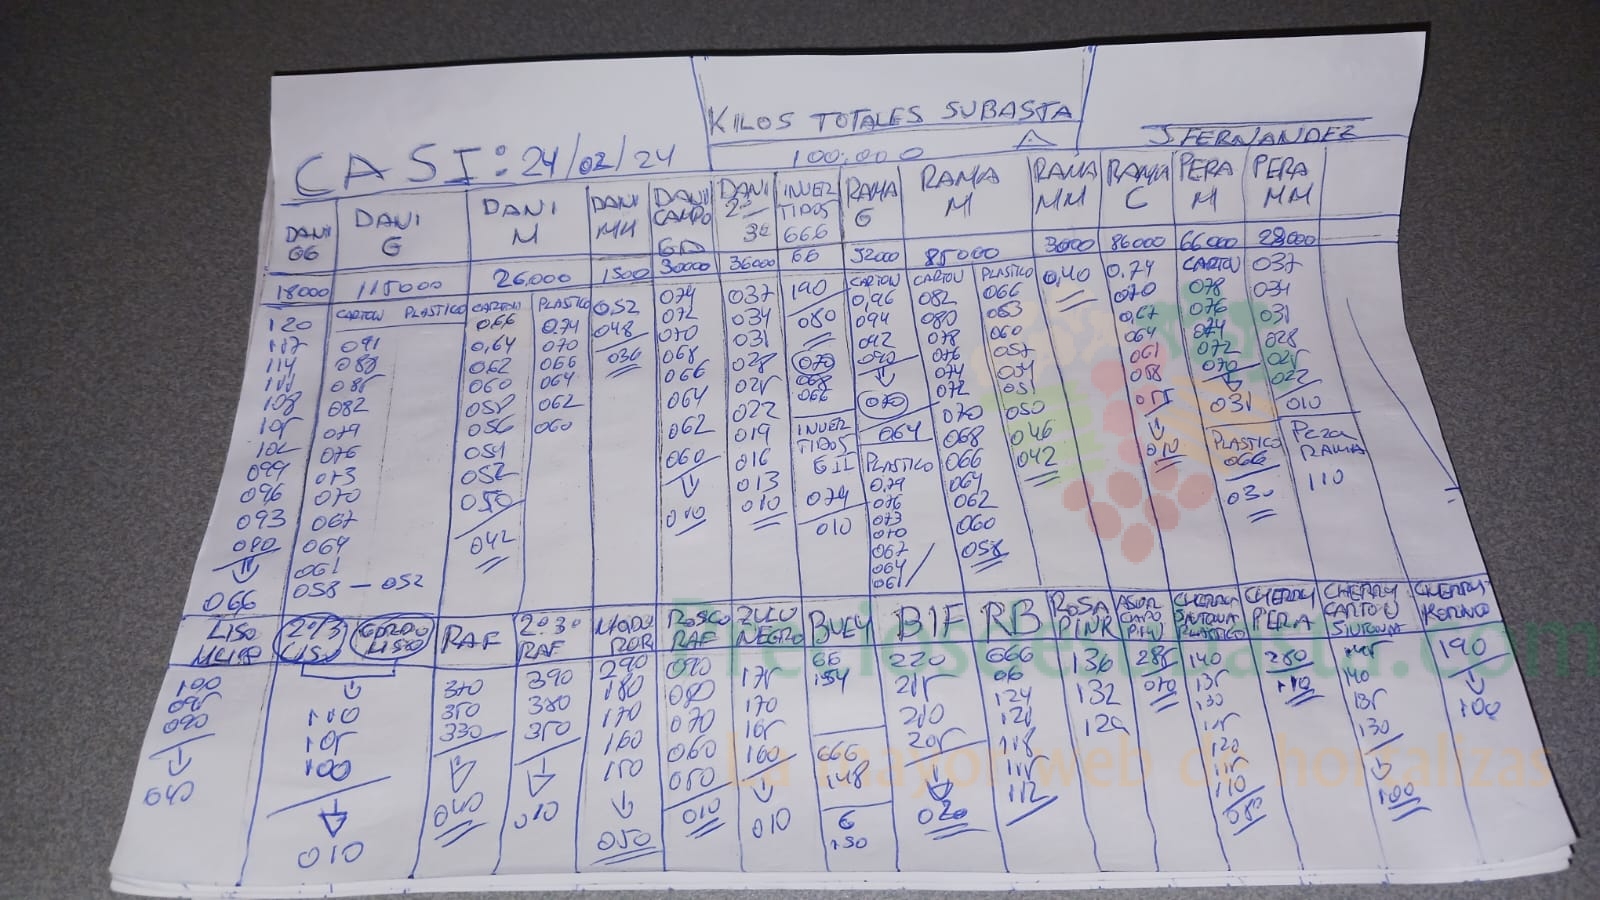 KILOS TOTALES SUBASTA
A
100.000
J. FERNANDEZ
CASI: 24/02/24
DANI GG
DANI G
DANI M
DANI MM
DANI CAMPO
DANI 2ª 3ª
INVER TIDOS 666
RAMA G
RAMA M
RAMA MM
RAMA C
PERA M
PERA MM
18000 115000 26,000 1500 30000 36000 66 52000 85000 3000 86000 66000 28000
120
117
114
111
108
105
102
099
096
093
090
066
CARTON PLASTICO
091
088
085
082
079
076
073
070
067
064
061
058 — 052
CARTON
0,66
0,64
062
060
058
056
054
052
050
042
PLASTICO
0,74
070
066
064
062
060
0,52
048
036
074
072
070
068
066
064
062
060
010
037
034
031
028
025
022
019
016
013
010
190
080
070
068
066
INVER TIDOS GII
074
010
CARTON
0,96
094
092
090
070
064
PLASTICO
0,79
076
073
070
067
064
061
CARTON
082
080
078
076
074
072
070
068
066
064
062
060
058
PLASTICO
066
063
060
057
054
051
050
046
042
0,40
0,74
070
0,67
064
061
058
055
010
CARTON
078
076
074
072
070
031
PLASTICO
066
030
037
034
031
028
025
022
010
PERA RAMA
110
LISO
2ª/3ª LISO
GORDO LISO
RAF
2ª 3ª RAF
MODO ROR
ROSCO RAF
ZULU NEGRO
BUEY
BIF
RB
ROSA PINK
CHERRY SINTONIA PLASTICO
CHERRY PERA
CHERRY CARTON SINTONIA
CHERRY KOKINO
100
095
090
040
110
105
100
010
370
350
330
040
390
380
350
010
290
180
170
160
150
050
090
080
070
060
050
010
175
170
165
160
010
66
154
666
148
6
150
220
215
210
205
020
666
126
124
120
118
115
112
136
132
129
285
010
140
135
130
125
120
115
110
080
280
110
145
140
135
130
100
190
100
Preciosdesubasta.com
La mayor web de hortalizas